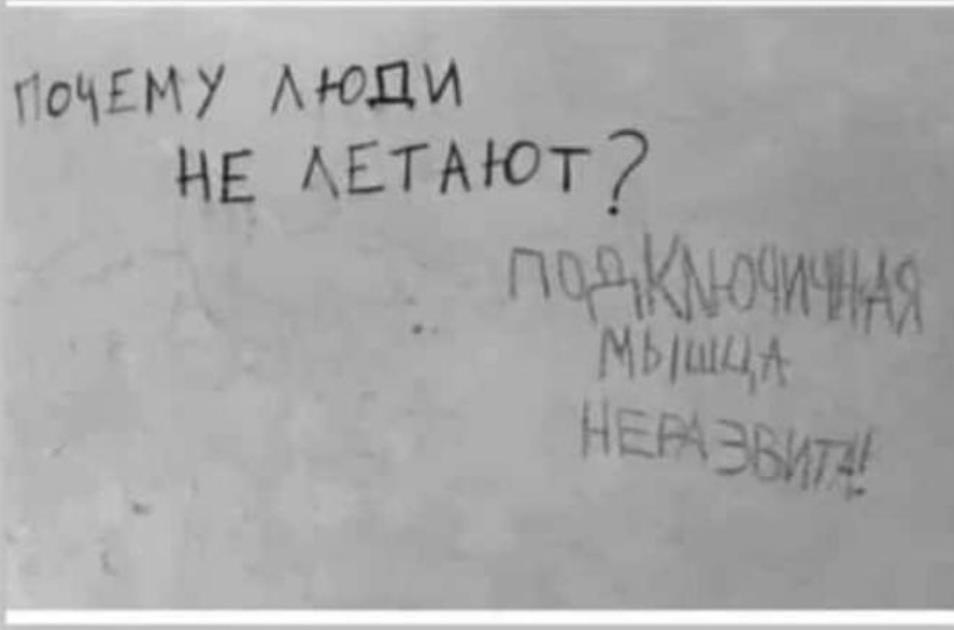 ПОЧЕМУ ЛЮДИ
НЕ ЛЕТАЮТ?
ПОДКЛЮЧИЧНАЯ
МЫШЦА
НЕРАЗВИТА!